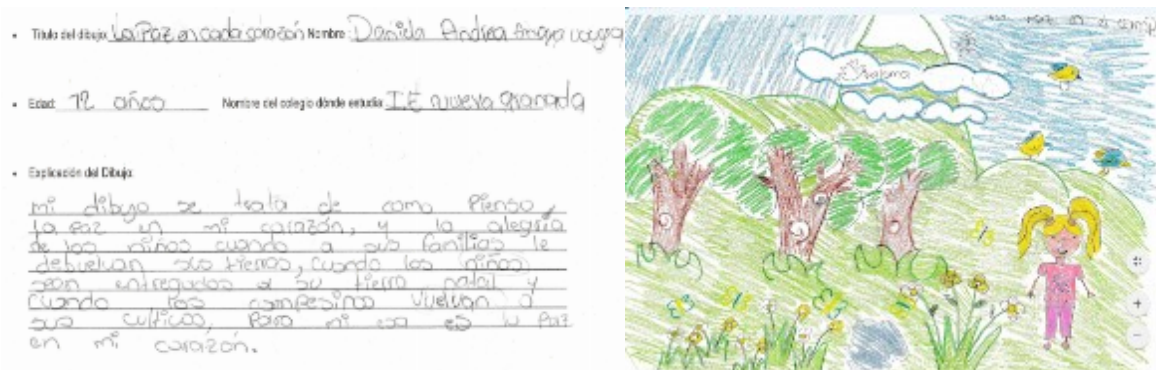 • Título del dibujo: La Paz en cada corazón Nombre: Daniela Andrea
• Edad: 12 años Nombre del colegio dónde estudia: I.E nueva granada
• Explicación del Dibujo:
mi dibujo se trata de como Pienso
la paz en mi corazón, y la alegría
de los niños cuando a sus familias le
debuelvan sus tierras, cuando los niños
sean entregados a su tierra natal y
cuando los campesinos vuelvan a
sus cultivos, Para mi esa es la Paz
en mi corazón.